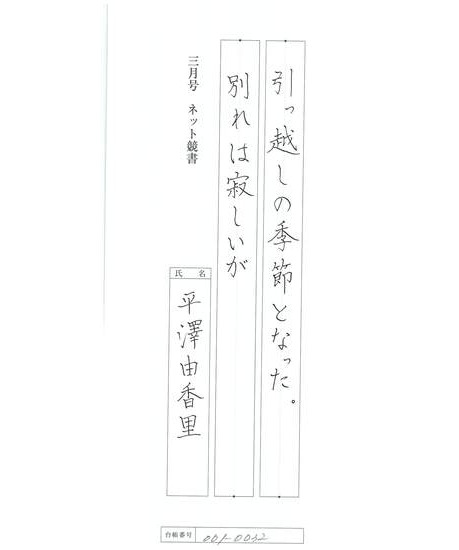 引っ越しの季節となった。
別れは寂しいが
三月号 ネット競書
氏名
平澤由香里
台帳番号 001-0032